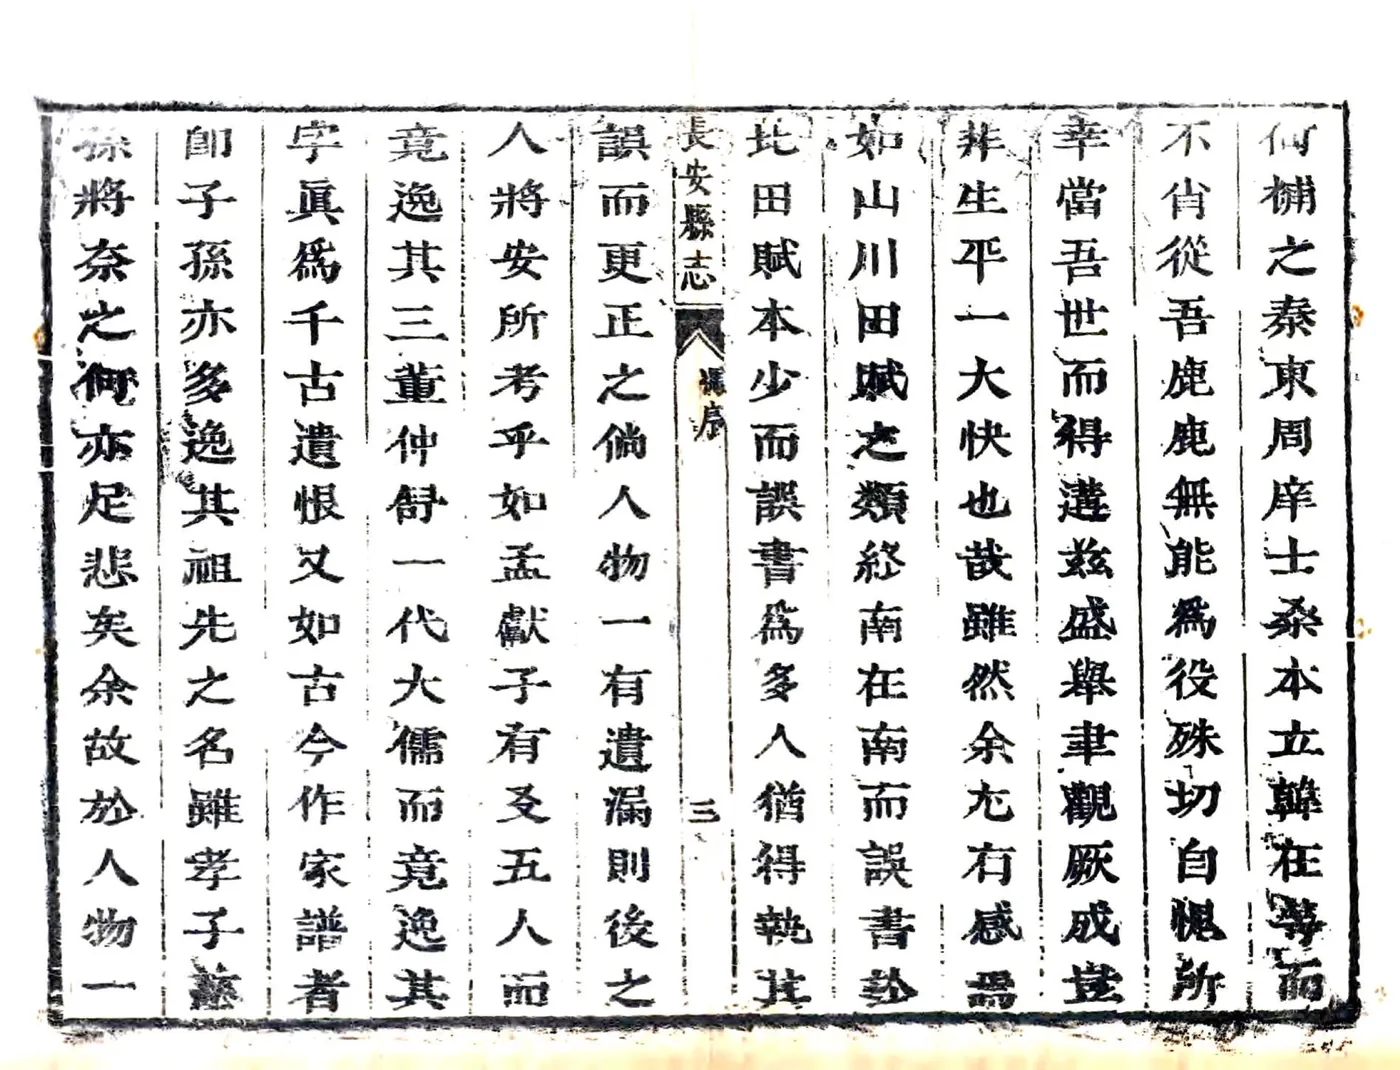 何補之秦東周庠士桑本立韓在等而
不肖從吾鹿鹿無能為役殊切自愧所
幸當吾世而得遘茲盛舉聿觀厥成豈
非生平一大快也哉雖然余尤有感焉
如山川田賦之類終南在南而誤書於
北田賦本少而誤書為多人猶得執其
長安縣志
馮序
三
誤而更正之倘人物一有遺漏則後之
人將安所考乎如孟獻子有友五人而
竟逸其三董仲舒一代大儒而竟逸其
字眞為千古遺恨又如古今作家譜者
卽子孫亦多逸其祖先之名雖孝子慈
孫將奈之何亦足悲矣余故於人物一